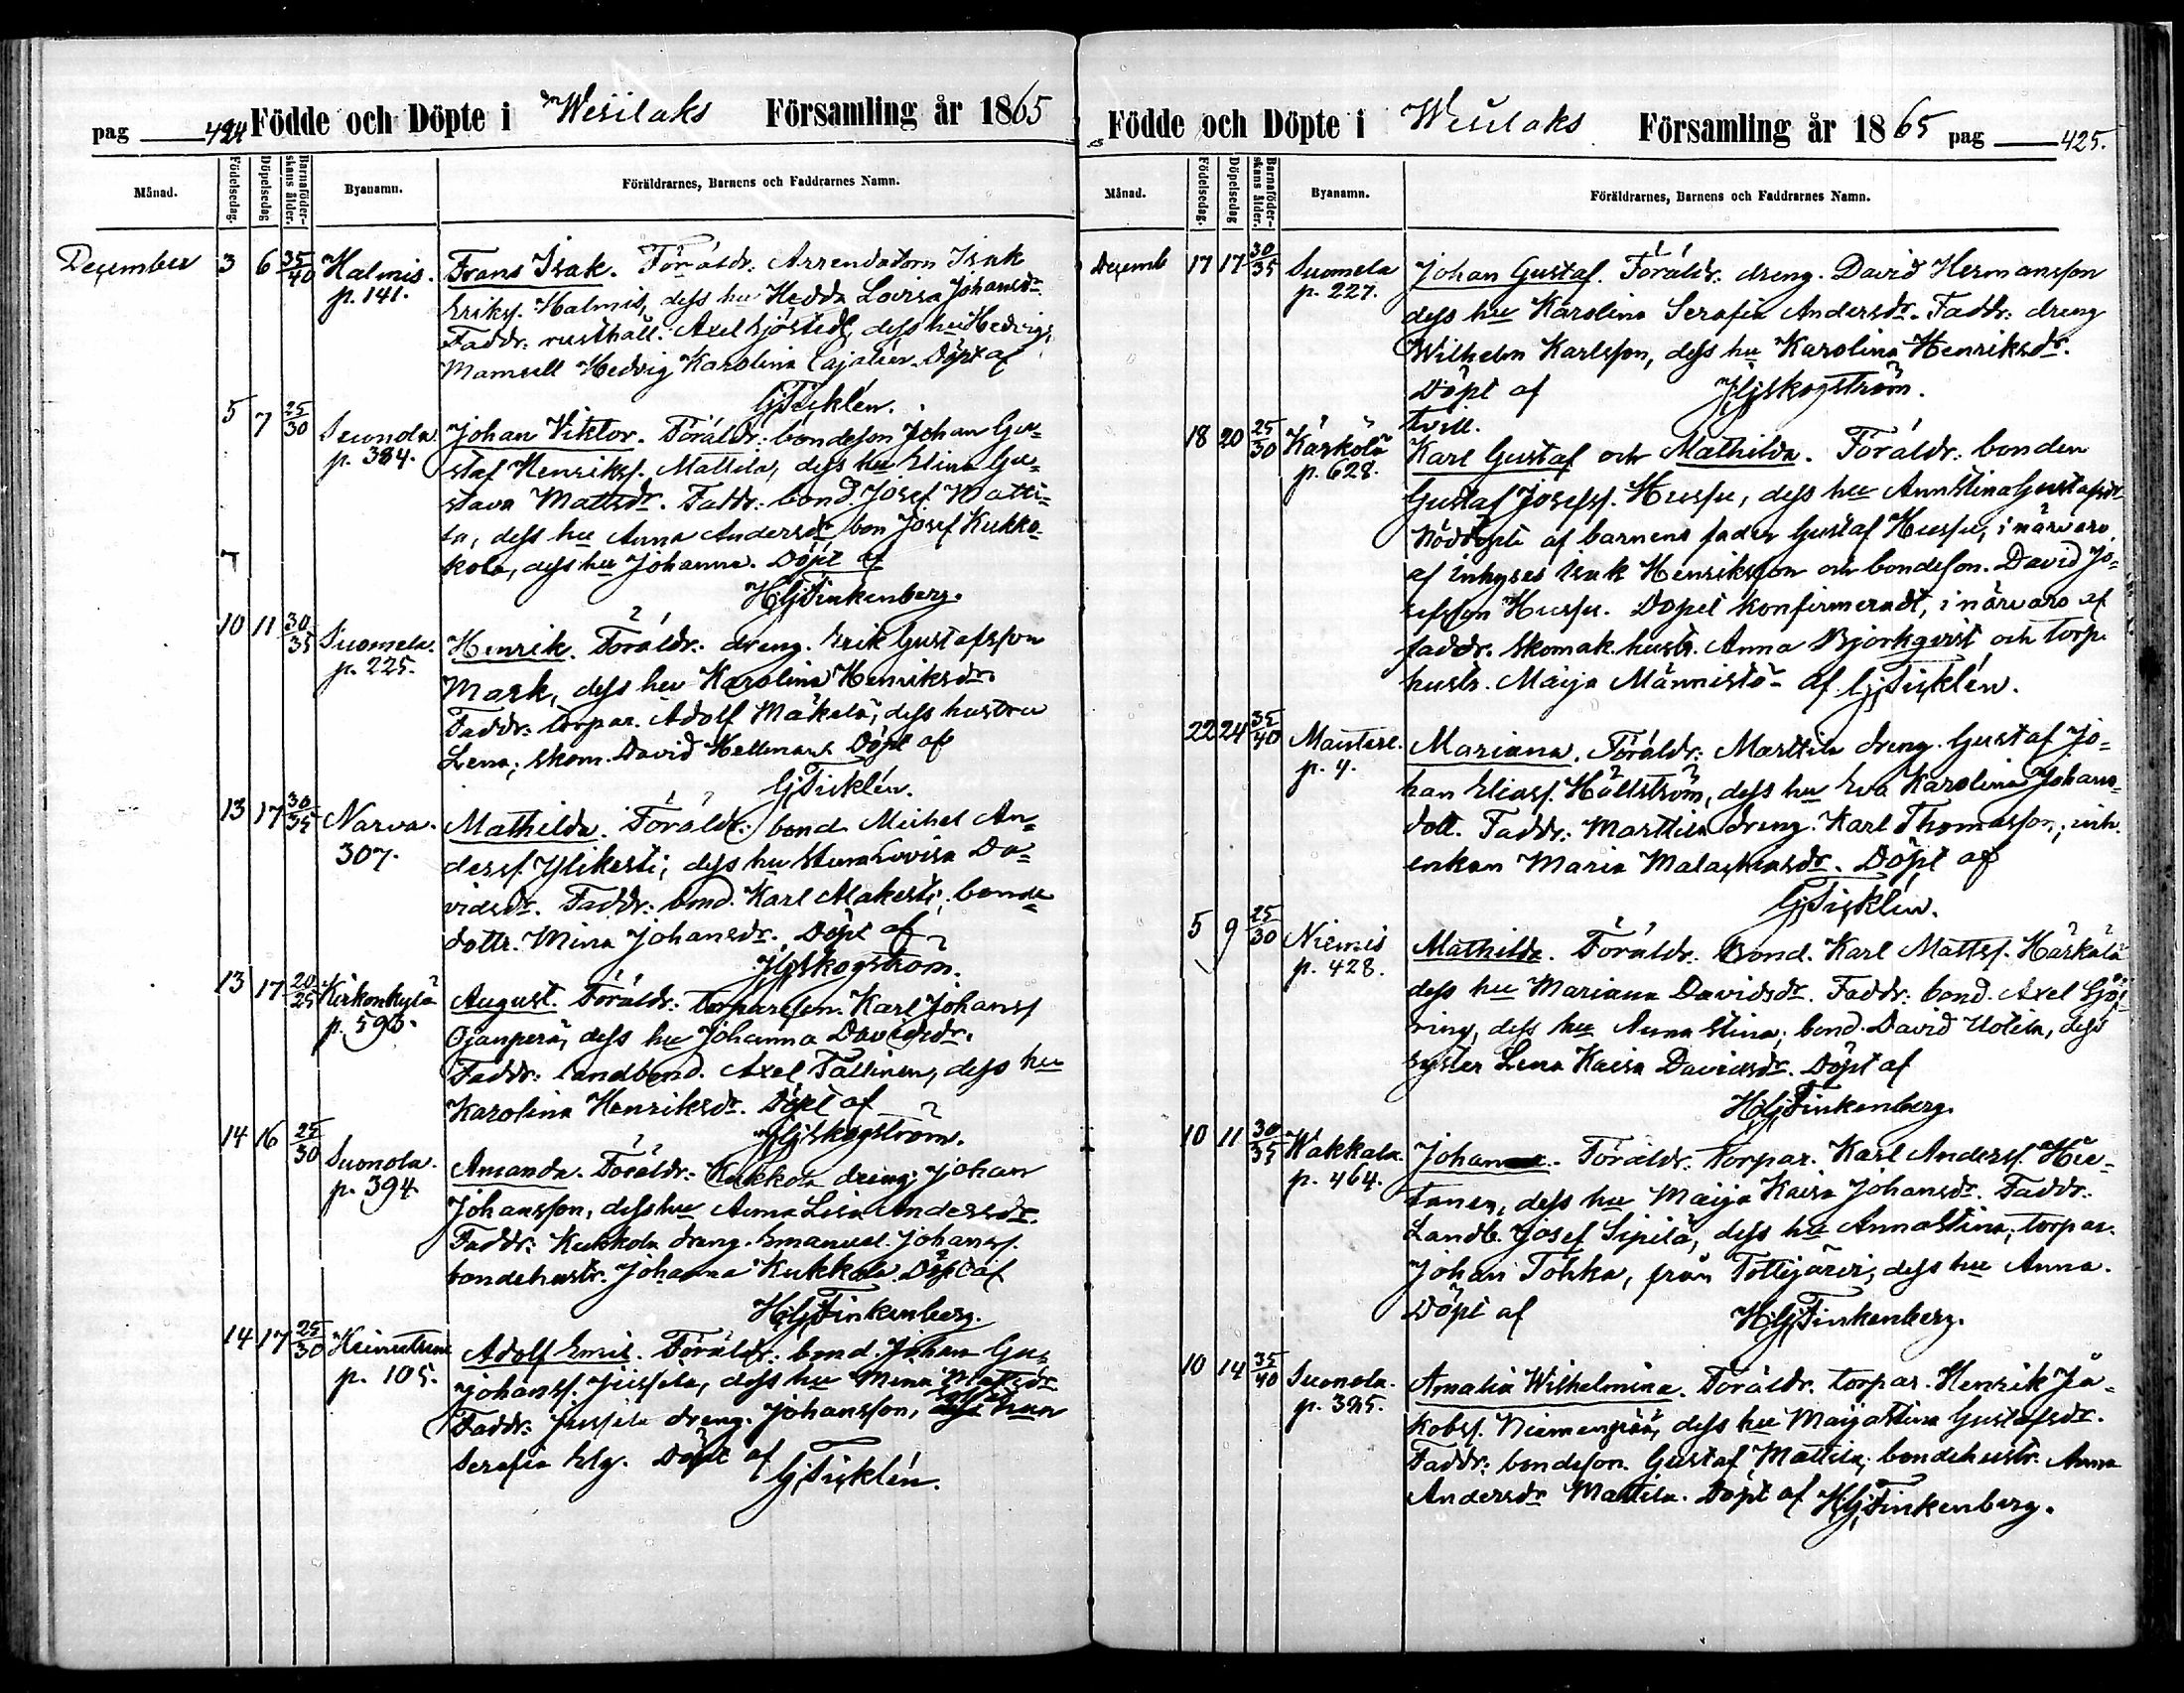 pag 424 Födde och Döpte i Wesilaks Församling år 1865
Månad. Födelsedag. Döpelsedag Barnaföder-skans ålder. Byanamn. Föräldrarnes, Barnens och Faddrarnes Namn.
December 3 6 35/40 Halmis. Frans Isak. Föräldr: Arrendatorn Isak
p. 141. Eriksf. Halmis, dess hu Hedda Lovisa Johansdr.
Faddr: rusthåll. Axel Sjöstedt, dess hu Hedvig,
Mamsell Hedvig Karolina Cajalén. Döpt af
G. Ticklén.
5 7 25/30 Suonola Johan Viktor. Föräldr: bondeson Johan Gu-
p. 384. staf Henriksf. Mattila, dess hu Elina Gu-
stava Mattsdr. Faddr: bond. Josef Matti-
la, dess hu Anna Andersdr, bon Josef Kukko-
kola, dess hu Johanna. Döpt af
H. G. Finkenberg.
10 11 30/35 Suomela. Henrik. Föräldr: dreng. Erik Gustafsson
p. 225. Mark, dess hu Karolina Henriksdr.
Faddr: torpar. Adolf Mäkelä, dess hustru
Lena; skom. David Hellman. Döpt af
G. Ticklén.
13 17 30/35 Narva. Mathilda. Föräldr: bond Michel An-
307. dersf. Ylikesti; dess hu Lovisa Da-
vidsdr. Faddr: bond. Karl Alakesti; bonde
dottr. Mina Johansdr. Döpt af
J. G. Skogström.
13 17 20/25 Kirkonkylä August. Föräldr: torpareson. Karl Johansf
p. 593. Ojanperä, dess hu Johanna Davidsdr.
Faddr: landbond. Axel Tallinen, dess hu
Karolina Henriksdr. Döpt af
J. G. Skogström.
14 16 25/30 Suonola. Amanda. Föräldr: Kukkola dreng; Johan
p. 394. Johansson, dess hu Anna Lisa Andersdr.
Faddr: Kukkola dreng. Emanuel Johansf.
bondehustr. Johanna Kukkola. Döpt af
H. G. Finkenberg.
14 17 25/30 p. 105. Adolf Emil. Föräldr: bond. Johan Gu-
Johansf. Jussila, dess hu Mina
Faddr: Jussila dreng. Johansson,
Serafia Elg. Döpt af G. Ticklén.
Födde och Döpte i Wesilaks Församling år 1865 pag 425.
Månad. Födelsedag. Döpelsedag Barnaföder-skans ålder. Byanamn. Föräldrarnes, Barnens och Faddrarnes Namn.
Decemb 17 17 30/35 Suomela Johan Gustaf. Föräldr: dreng. David Hermansson
p. 227. dess hu Karolina Serafia Andersdr. Faddr: dreng
Wilhelm Karlsson, dess hu Karolina Henriksdr.
Döpt af J. G. Skogström.
tvill.
18 20 25/30 Karkola Karl Gustaf och Mathilda. Föräldr: bonden
p. 628. Gustaf Josefsf. Hussu, dess hu Annstina Gustafsdr
Nöddöpte af barnens fader Gustaf Hussu, i närvaro
af inhyses Isak Henriksson och bondeson. David Jo-
sefsson Hussu. Dopet konfirmeradt, i närvaro af
faddr. Skomak. hustr. Anna Björkqvist och torp.
hustr. Maija Männistö - af G. Ticklén.
22 24 35/40 Mantere. Mariana. Föräldr: Marttila dreng. Gustaf Jo-
p. 4. han Eliasf. Hällström, dess hu Eva Karolina Johans-
dott. Faddr: Marttila dreng. Karl Thomasson; inh.
enkan Maria Malachiasdr. Döpt af
G. Ticklén.
5 9 25/30 Niemis Mathilda. Föräldr. Bond. Karl Mattsf. Härkälä
p. 428. dess hu Mariana Davidsdr. Faddr: bond. Axel
dess hu Anna Stina; bond. David Uotila, dess
syster Lena Kaisa Davidsdr. Döpt af
H. G. Finkenberg.
10 11 30/35 Wakkala. Johan. Föräldr. torpar. Karl Andersf. Hie-
p. 464. tanen, dess hu Maija Kaisa Johansdr. Faddr.
Landb. Josef Sipilä, dess hu Annastina; torpar.
Johan Tohka, från Tottijärvi, dess hu Anna.
Döpt af H. G. Finkenberg.
10 14 35/40 Suonola. Amalia Wilhelmina. Föräldr. torpar. Henrik Ja-
p. 395. kobsf. Niemenpää, dess hu Maijastina Gustafsdr.
Faddr: bondeson. Gustaf Mattila; bondehustr. Anna
Andersdr Mattila. Döpt af H. G. Finkenberg.